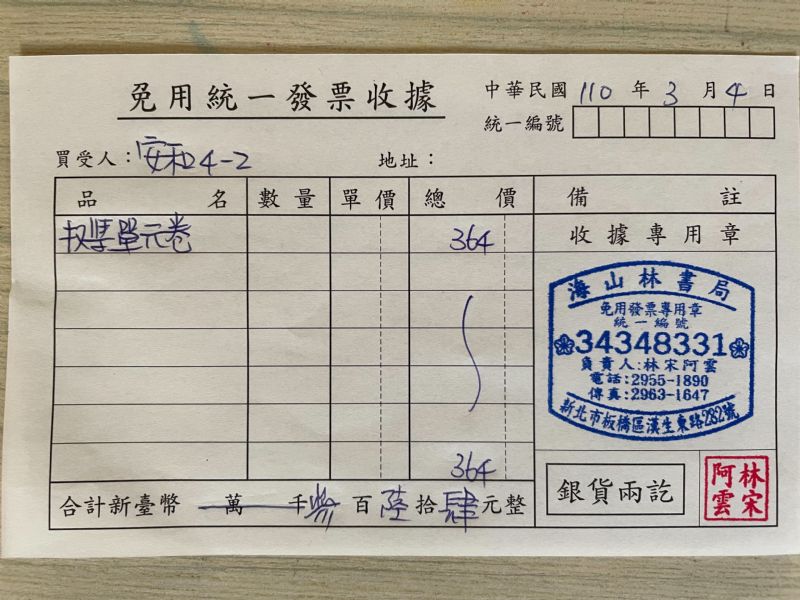 免用統一發票收據
中華民國 110 年 3 月 4 日
統一編號
買受人：安和24-2 地址：
品名 數量 單價 總價 備註
單元卷 364 收據專用章
海山林書局
免用發票專用章
統一編號
34348331
負責人:林宋阿雲
電話:2955-1890
傳真:2963-1647
新北市板橋區漢生東路282號
364
合計新臺幣 萬 千 參 百 陸 拾 肆 元整
銀貨兩訖
林宋阿雲